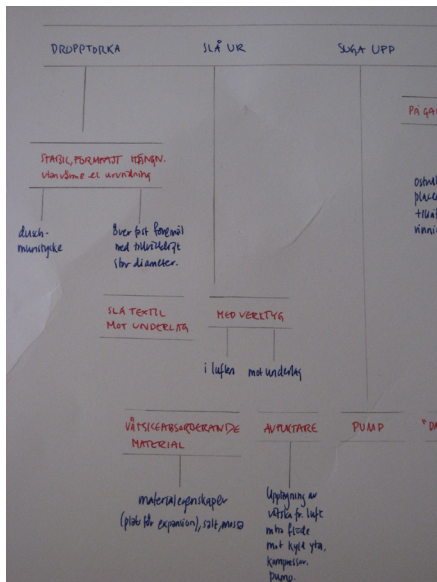 DRUPPTORKA
SLÅ UR
SUGA UPP
PÅ GA
STABIL, FORMFAST HÄNGN.
utan värme el. urvridning
dusch-
munstycke
över fast föremål
med tillräckligt
stor diameter.
placer
rinni
SLÅ TEXTIL
MOT UNDERLAG
MED VERKTYG
i luften
mot underlag
VÄTSKEABSORBERANDE
MATERIAL
AVFUKTARE
PUMP
"DA
materialegenskaper
(plats för expansion), salt,
Uppfågning av
vätska fr. luft
flöde
mot kyld yta,
kompressor.
pump.